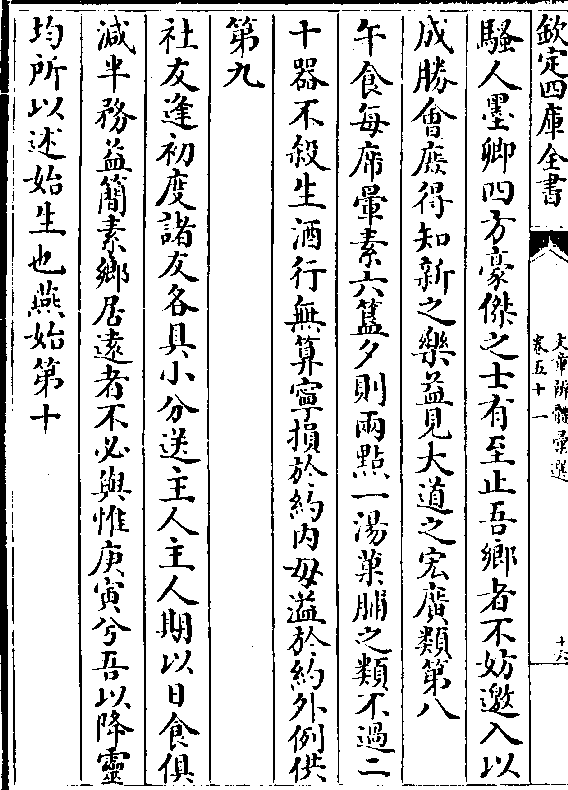 欽定四庫全書
文章辨體彙選
卷五十一
十六
騷人墨卿四方豪傑之士有至止吾鄉者不妨邀入以
成勝會庶得知新之樂益見大道之宏廣類第八
午食每席葷素六簋夕則兩點一湯菓脯之類不過二
十器不殺生酒行無算寧損於約内毋溢於約外例供
第九
社友逢初度諸友各具小分送主人主人期以日食俱
減半務益簡素鄉居遠者不必與惟庚寅兮吾以降靈
均所以述始生也燕始第十